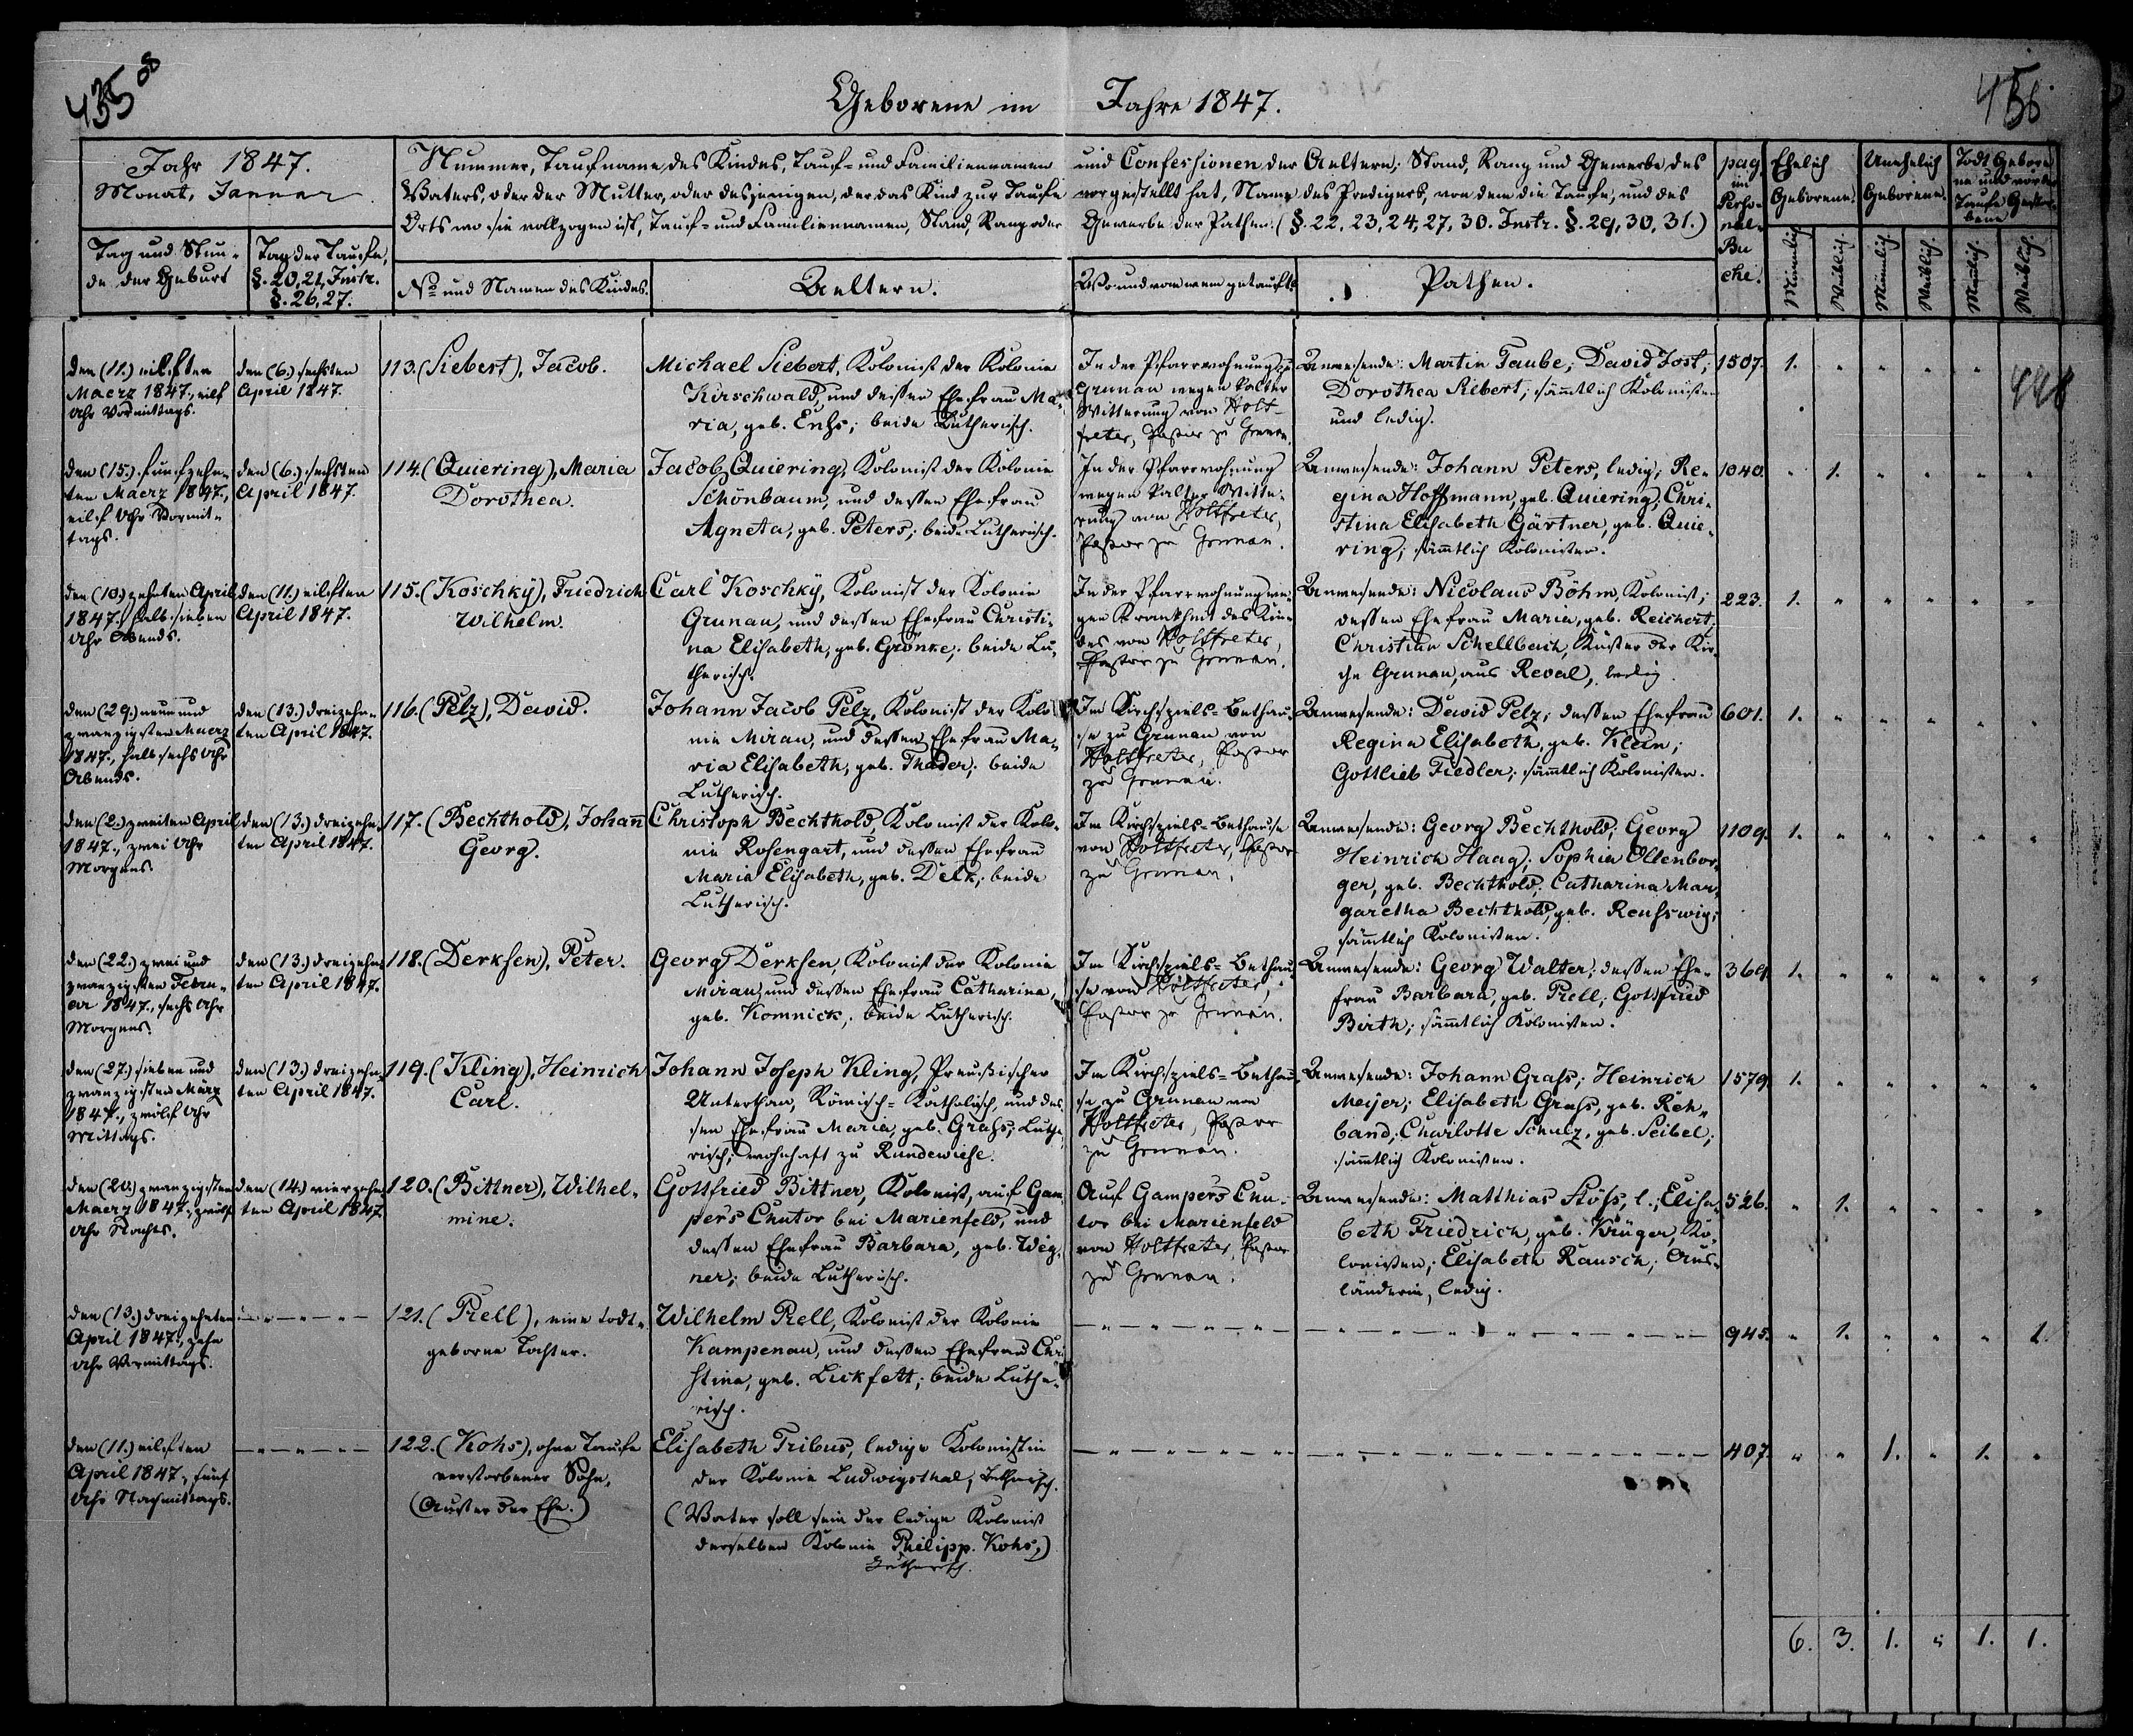 435 08
456
Geborene im Jahre 1847.
Jahr 1847.
Monat, Januar
Nummer, Taufname des Kindes, Tauf- und Familiennamen und Confessionen der Aeltern; Stand, Rang und Gewerbe des
Vaters, oder der Mutter, oder desjenigen, der das Kind zur Taufe vorgestellt hat, Name des Predigers, von dem die Taufe, und des
Orts wo sie vollzogen ist, Tauf- und Familiennamen, Stand, Rang oder Gewerbe der Pathen. (§. 22, 23, 24, 27, 30. Instr. §. 29, 30, 31.)
pag.
im
Perso-
nal-
Bu
che.
Ehelich
Geborene.
Unehelich
Geborene.
Todt Gebore
ne und vor der
Taufe Gestor-
bene
Tag und Stun-
de der Geburt
Tag der Taufe,
§. 20, 21, Instr.
§. 26, 27.
No und Namen des Kindes.
Aeltern.
Wo und von wem getauft.
Pathen.
Männlich.
Weiblich.
Männlich.
Weiblich.
Männlich.
Weiblich.
den (11.) eilften
Maerz 1847., eilf
Uhr Vormittags.
den (6.) sechsten
April 1847.
113. (Siebert), Jacob.
Michael Siebert, Kolonist der Kolonie
Kirschwald, und dessen Ehefrau Ma-
ria, geb. Enhs; beide Lutherisch.
In der Pfarrwohnung zu
Grunau wegen kalter
Witterung von Holt-
freter, Pastor zu Grunau.
Anwesende: Martin Taube; David Jost;
Dorothea Siebert; sämmtlich Kolonisten
und ledig.
1507. 1. " " " "
448
den (15.) funfzehn-
ten Maerz 1847.,
eilf Uhr Vormit-
tags.
den (6.) sechsten
April 1847.
114. (Quiering), Maria
Dorothea.
Jacob Quiering, Kolonist der Kolonie
Schönbaum, und dessen Ehefrau
Agneta, geb. Peters; beide Lutherisch.
In der Pfarrwohnung
wegen kalter Witte-
rung von Holtfreter,
Pastor zu Grunau.
Anwesende: Johann Peters, ledig; Re-
gina Hoffmann, geb. Quiering; Chri-
stina Elisabeth Gärtner, geb. Quie-
ring; sämmtlich Kolonisten.
1040. " 1. " " " "
den (10.) zehnten April
1847., halb sieben
Uhr Abends.
den (11.) eilften
April 1847.
115. (Koschky), Friedrich
Wilhelm.
Carl Koschky, Kolonist der Kolonie
Grunau, und dessen Ehefrau Christi-
na Elisabeth, geb. Grönke; beide Lu-
therisch.
In der Pfarrwohnung we-
gen Krankheit des Kin-
des von Holtfreter,
Pastor zu Grunau.
Anwesende: Nicolaus Böhm, Kolonist;
dessen Ehefrau Maria, geb. Reichert;
Christian Schellbach, Küster der Kir-
che Grunau, aus Reval, ledig.
223. 1. " " " " "
den (29.) neun und
zwanzigsten Maerz
1847., halb sechs Uhr
Abends.
den (13.) dreizehn-
ten April 1847.
116. (Pelz), David.
Johann Jacob Pelz, Kolonist der Kolo-
nie Mirau, und dessen Ehefrau Ma-
ria Elisabeth, geb. Thader; beide
Lutherisch.
Im Kirchspiels-Bethau-
se zu Grunau von
Holtfreter, Pastor
zu Grunau.
Anwesende: David Pelz; dessen Ehefrau
Regina Elisabeth, geb. Klein;
Gottlieb Fiedler; sämmtlich Kolonisten.
601. 1. " " " " "
den (2.) zweiten April
1847., zwei Uhr
Morgens.
den (13.) dreizehn-
ten April 1847.
117. (Bechthold), Johann
Georg.
Christoph Bechthold, Kolonist der Kolo-
nie Rosengart, und dessen Ehefrau
Maria Elisabeth, geb. Delk; beide
Lutherisch.
Im Kirchspiels-Bethause
von Holtfreter, Pastor
zu Grunau.
Anwesende: Georg Bechthold; Georg
Heinrich Haag; Sophia Ollenbor-
ger, geb. Bechthold; Catharina Mar-
garetha Bechthold, geb. Reuhswig;
sämmtlich Kolonisten.
1109. 1. " " " " "
den (22.) zwei und
zwanzigsten Febru-
ar 1847., sechs Uhr
Morgens.
den (13.) dreizehn-
ten April 1847.
118. (Derksen), Peter.
Georg Derksen, Kolonist der Kolonie
Mirau, und dessen Ehefrau Catharina,
geb. Komnick; beide Lutherisch.
Im Kirchspiels-Bethau-
se von Holtfreter,
Pastor zu Grunau.
Anwesende: Georg Walter; dessen Ehe-
frau Barbara, geb. Prell; Gottfried
Birth; sämmtlich Kolonisten.
369. 1. " " " " "
den (27.) sieben und
zwanzigsten März
1847., zwölf Uhr
Mittags.
den (13.) dreizehn-
ten April 1847.
119. (Kling), Heinrich
Carl.
Johann Joseph Kling, Preußischer
Unterthan, Römisch-Katholisch, und des-
sen Ehefrau Maria, geb. Grahs; Luthe-
risch; wohnhaft zu Rundewiese.
Im Kirchspiels-Bethau-
se zu Grunau von
Holtfreter, Pastor
zu Grunau.
Anwesende: Johann Grahs; Heinrich
Meijer; Elisabeth Grahs, geb. Reh-
band; Charlotte Schulz, geb. Seibel;
sämmtlich Kolonisten.
1579. 1. " " " " "
den (20.) zwanzigsten
Maerz 1847., zwölf
Uhr Nachts.
den (14.) vierzehn-
ten April 1847.
120. (Bittner), Wilhel-
mine.
Gottfried Bittner, Kolonist, auf Gam-
per's Chutor bei Marienfeld, und
dessen Ehefrau Barbara, geb. Weg-
ner; beide Lutherisch.
Auf Gamper's Chu-
tor bei Marienfeld
von Holtfreter, Pastor
zu Grunau.
Anwesende: Matthias Stöhs, l.; Elisa-
beth Friedrich, geb. Krüger, Ko-
lonisten; Elisabeth Rausch, Aus-
länderin, ledig.
526. " 1. " " " "
den (13.) dreizehnten
April 1847., zehn
Uhr Vormittags.
121. (Prell), eine todt-
geborne Tochter.
Wilhelm Prell, Kolonist der Kolonie
Kampenau, und dessen Ehefrau Chri-
stina, geb. Lickfett; beide Luthe-
risch.
945. " 1. " " " 1.
den (11.) eilften
April 1847., fünf
Uhr Nachmittags.
122. (Kohs), ohne Taufe
verstorbener Sohn.
(Außer der Ehe.)
Elisabeth Tribus, ledige Kolonistin
der Kolonie Ludwigsthal; Lutherisch.
(Vater soll sein der ledige Kolonist
derselben Kolonie Philipp Kohs,)
Lutherisch.
407. " " 1. " 1. "
6. 3. 1. " 1. 1.